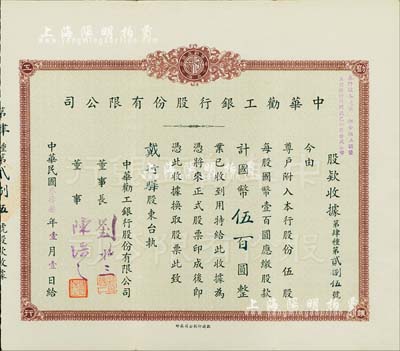 上海陽明拍賣
司公限有份股行銀工勸華中
股款收據第肆種第貳捌伍號
今由
尊戶附入本行股份伍股
每股國幣壹百圓應繳股款
計國幣伍百圓整
業已收到用特給此收據為
憑將來正式股票印成後即
憑此收據換取股票此致
戴行驛股東台執
中華勸工銀行股份有限公司
董事長
董事
中華民國 年壹月壹日給
第肆種第貳捌伍號股款收據